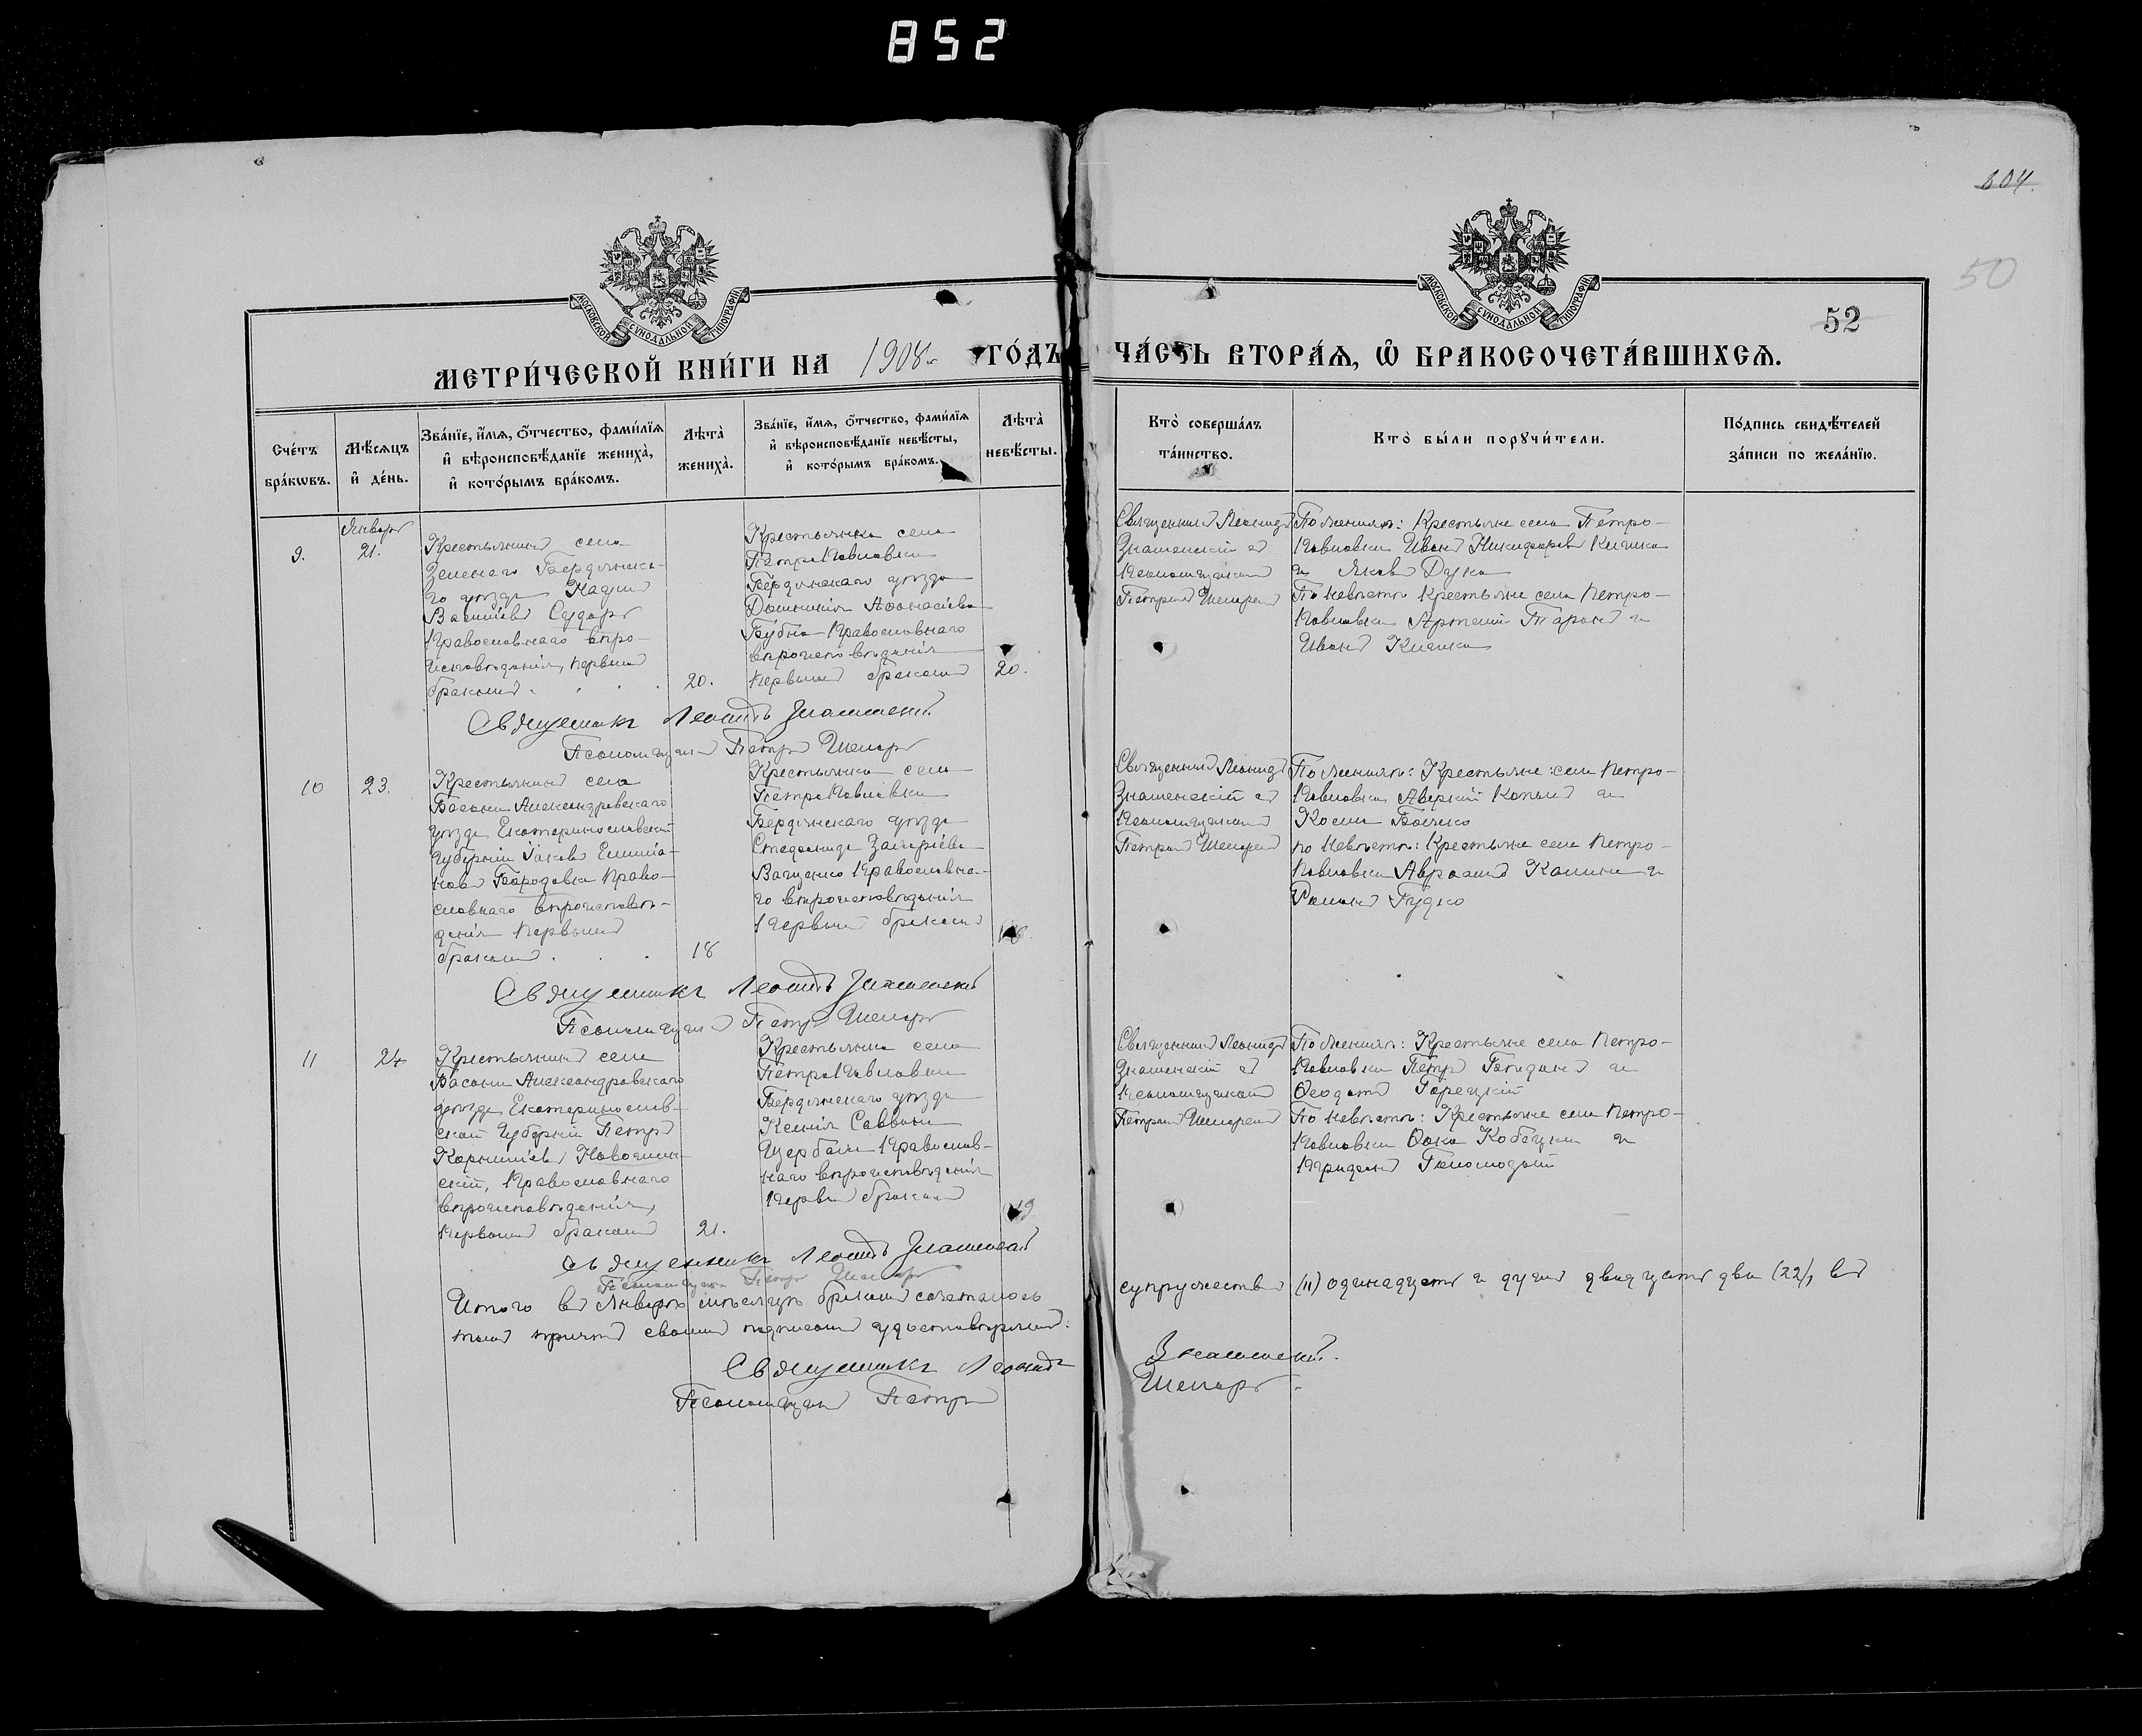 852
604.
50
52
МОСКОВСКОЙ СѴНОДАЛЬНОЙ ТИПОГРАФІИ
МОСКОВСКОЙ СѴНОДАЛЬНОЙ ТИПОГРАФІИ
МЕТРИ́ЧЕСКОЙ КНИ́ГИ НА 1908 ГО́ДЪ
ЧА́СТЬ ВТОРА́Ѧ, Ѽ БРАКОСОЧЕТА́ВШИХСѦ.
Сче́тъ бра́кѡвъ.
Мѣ́сѧцъ и҆ де́нь.
Зва́нїе, и҆́мѧ, ѻ҆́тчество, фами́лїѧ
и҆ вѣроисповѣ́данїе жениха̀,
и҆ кото́рымъ бра́комъ.
Лѣта̀ жениха̀.
Зва́нїе, и҆́мѧ, ѻ҆́тчество, фами́лїѧ
и҆ вѣроисповѣ́данїе невѣ́сты,
и҆ кото́рымъ бра́комъ.
Лѣта̀ невѣ́сты.
Кто̀ соверша́лъ та́инство.
Кто̀ бы́ли порꙋчи́тели.
По́дпись свидѣ́телей
за́писи по жела́нїю.
9.
Январь
21.
Крестьянинъ села
Зеленаго Бердянска-
го уѣзда
Василіевъ Сударь
Православнаго вѣро-
исповѣданія, первымъ
бракомъ . . . .
20.
Крестьянка села
ПетроПавловки
Бердянскаго уѣзда
Домникія Аѳанасіева
Бубна Православнаго
вѣроисповѣданія
Первымъ бракомъ
20.
Священникъ Леонидъ
Знаменскій съ
Псаломщикомъ
Петромъ Шепаремъ
По женихѣ: Крестьяне села Петро-
Павловки Иванъ Никифоровъ Кичика
и Яковъ Дука
По невѣстѣ Крестьяне села Петро-
Павловки Артемій Таранъ и
Иванъ Кичика
Священникъ Леонидъ Знаменскій
Псаломщикъ Петръ Шепарь
10
23.
Крестьянинъ села
Басани Александровскаго
уѣзда Екатеринославской
Губерніи Іаковъ Емилiа-
новъ Бородавка Право-
славнаго вѣроисповѣ-
данія Первымъ
бракомъ . . .
18
Крестьянка села
ПетроПавловки
Бердянскаго уѣзда
Стефанида Захаріева
Ващенко Православна-
го вѣроисповѣданія
Первымъ бракомъ
18.
Священникъ Леонидъ
Знаменскій съ
Псаломщикомъ
Петромъ Шепаремъ
По женихѣ: Крестьяне села Петро-
Павловки Аверкій Копылъ и
Косма Бойко
по невѣстѣ: Крестьяне села Петро-
Павловки Авраамъ Калина и
Романъ Гудко
Священникъ Леонидъ Знаменскій
Псаломщикъ Петръ Шепарь
11
24
Крестьянинъ села
Басани Александровскаго
уѣзда Екатеринослав-
ской Губерніи Петръ
Корниліевъ
скій, Православнаго
вѣроисповѣданія,
Первымъ бракомъ
21.
Крестьянка села
ПетроПавловки
Бердянскаго уѣзда
Ксенія Саввина
Щербань Православ-
наго вѣроисповѣданія
Первымъ бракомъ
19
Священникъ Леонидъ
Знаменскій съ
Псаломщикомъ
Петромъ Шепаремъ
По женихѣ: Крестьяне села Петро-
Павловки Петръ и
Ѳеодотъ Горецкій
По невѣстѣ: Крестьяне села Петро-
Павловки Ѳока Кобецкій и
Спиридонъ
Священникъ Леонидъ Знаменскій
Псаломщикъ Петръ Шепарь
Итого въ Январѣ мѣсяцѣ бракомъ сочеталось супружествъ (11) одинадцать и душъ двадцать два (22), въ
томъ причтъ своимъ подписомъ удостовѣряемъ:
Священникъ Леонидъ Знаменскій.
Псаломщикъ Петръ Шепарь.